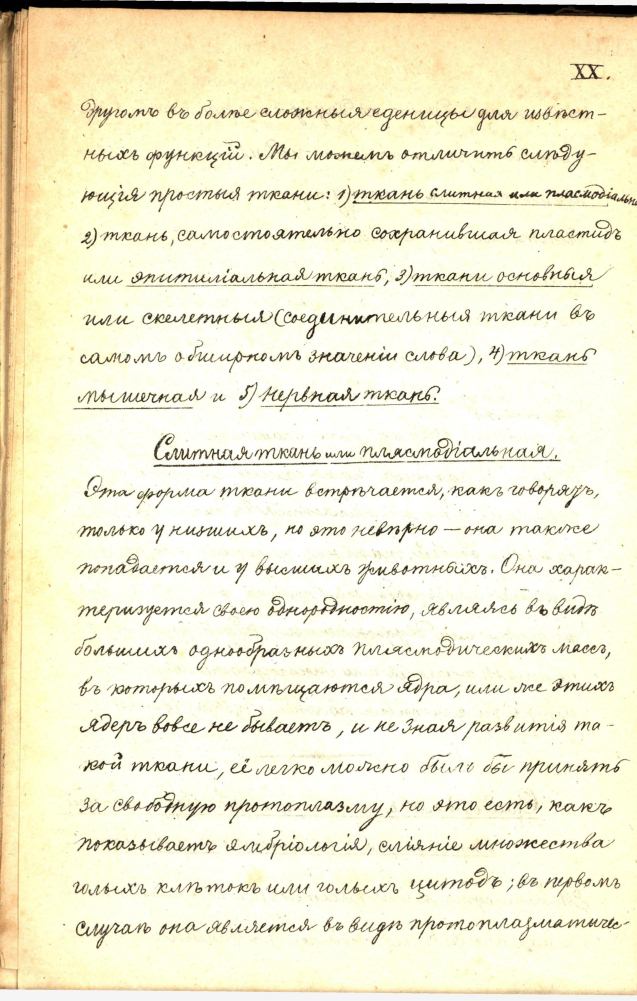 XX.
другомъ въ болѣе сложныя еденицы для извѣст-
ныхъ функцій. Мы можемъ отличить слѣду-
ющія простыя ткани: 1) ткань слитная или плясмодіальная
2) ткань, самостоятельно сохранившая пластидъ
или эпителіальная ткань, 3) ткани основныя
или скелетныя (соединительныя ткани въ
самомъ обширномъ значеніи слова), 4) ткань
мышечная и 5) нервная ткань.
Слитная ткань или плясмодіальная.
Эта форма ткани встрѣчается, какъ говорятъ,
только у низшихъ, но это невѣрно — она также
попадается и у высшихъ животныхъ. Она харак-
теризуется своею однородностію, являясь въ видѣ
большихъ однообразныхъ плясмодическихъ массъ,
въ которыхъ помѣщаются ядра, или же этихъ
ядеръ вовсе не бываетъ, и не зная развитія та-
кой ткани, её легко можно было бы принять
за свободную протоплазму, но это есть, какъ
показываетъ эмбріологія, сліяніе множества
голыхъ клѣтокъ или голыхъ цитодъ; въ первомъ
случаѣ она является въ видѣ протоплазматичес-